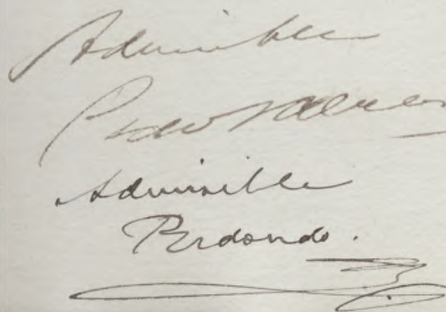 Admisible
Admisible
Redondo.